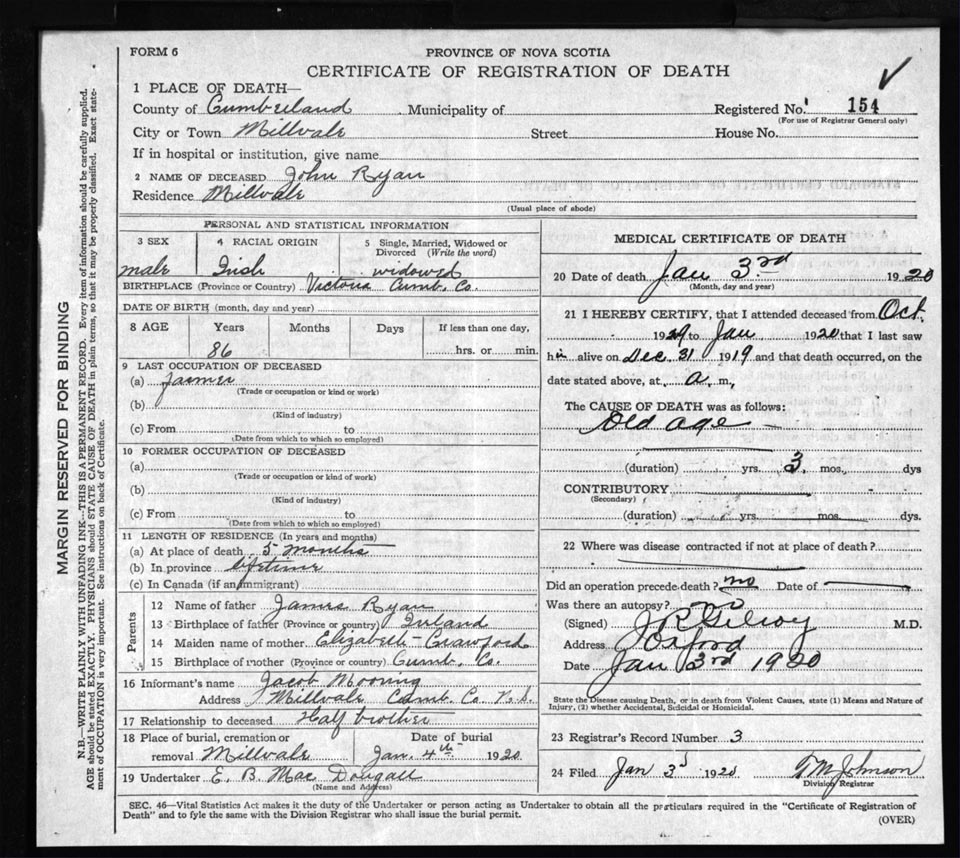 FORM 6
PROVINCE OF NOVA SCOTIA
CERTIFICATE OF REGISTRATION OF DEATH
1 PLACE OF DEATH—
County of Cumberland Municipality of Registered No. 154
(For use of Registrar General only)
City or Town Millvale Street House No.
If in hospital or institution, give name
2 NAME OF DECEASED John Ryan
Residence Millvale
(Usual place of abode)
MARGIN RESERVED FOR BINDING
N.B.—WRITE PLAINLY WITH UNFADING INK—THIS IS A PERMANENT RECORD. Every item of information should be carefully supplied.
AGE should be stated EXACTLY. PHYSICIANS should STATE CAUSE OF DEATH in plain terms, so that it may be properly classified. Exact state-
ment of OCCUPATION is very important. See instructions on back of Certificate.
PERSONAL AND STATISTICAL INFORMATION
3 SEX 4 RACIAL ORIGIN 5 Single, Married, Widowed or Divorced (Write the word)
male Irish widowed
BIRTHPLACE (Province or Country) Victoria Cumb. Co.
DATE OF BIRTH (month, day and year)
8 AGE Years Months Days If less than one day,
86 hrs. or min.
9 LAST OCCUPATION OF DECEASED
(a) Farmer
(Trade or occupation or kind or work)
(b)
(Kind of industry)
(c) From to
(Date from which to which so employed)
10 FORMER OCCUPATION OF DECEASED
(a)
(Trade or occupation or kind of work)
(b)
(Kind of industry)
(c) From to
(Date from which to which so employed)
11 LENGTH OF RESIDENCE (In years and months)
(a) At place of death 5 months
(b) In province lifetime
(c) In Canada (if an immigrant)
Parents
12 Name of father James Ryan
13 Birthplace of father (Province or country) Ireland
14 Maiden name of mother Elizabeth Crawford
15 Birthplace of mother (Province or country) Cumb. Co.
16 Informant's name Jacob
Address Millvale Cumb. Co. N.S.
17 Relationship to deceased Half brother
18 Place of burial, cremation or Date of burial
removal Millvale Jan. 4th 1920
19 Undertaker E. B. Mac Dougall
(Name and Address)
MEDICAL CERTIFICATE OF DEATH
20 Date of death Jan 3rd 1920
(Month, day and year)
21 I HEREBY CERTIFY, that I attended deceased from Oct.
19 to Jan 1920 that I last saw
him alive on Dec. 31 1919 and that death occurred, on the
date stated above, at a m,
The CAUSE OF DEATH was as follows:
Old age
(duration) yrs. 3 mos. dys
CONTRIBUTORY
(Secondary)
(duration) yrs. mos. dys.
22 Where was disease contracted if not at place of death?
Did an operation precede death? no Date of
Was there an autopsy? no
(Signed) J R Gilroy M.D.
Address Oxford
Date Jan 3rd 1920
State the Disease causing Death, or in death from Violent Causes, state (1) Means and Nature of
Injury, (2) whether Accidental, Suicidal or Homicidal.
23 Registrar's Record Number 3
24 Filed Jan 3 1920 Johnson
Division Registrar
SEC. 46—Vital Statistics Act makes it the duty of the Undertaker or person acting as Undertaker to obtain all the particulars required in the "Certificate of Registration of
Death" and to fyle the same with the Division Registrar who shall issue the burial permit.
(OVER)